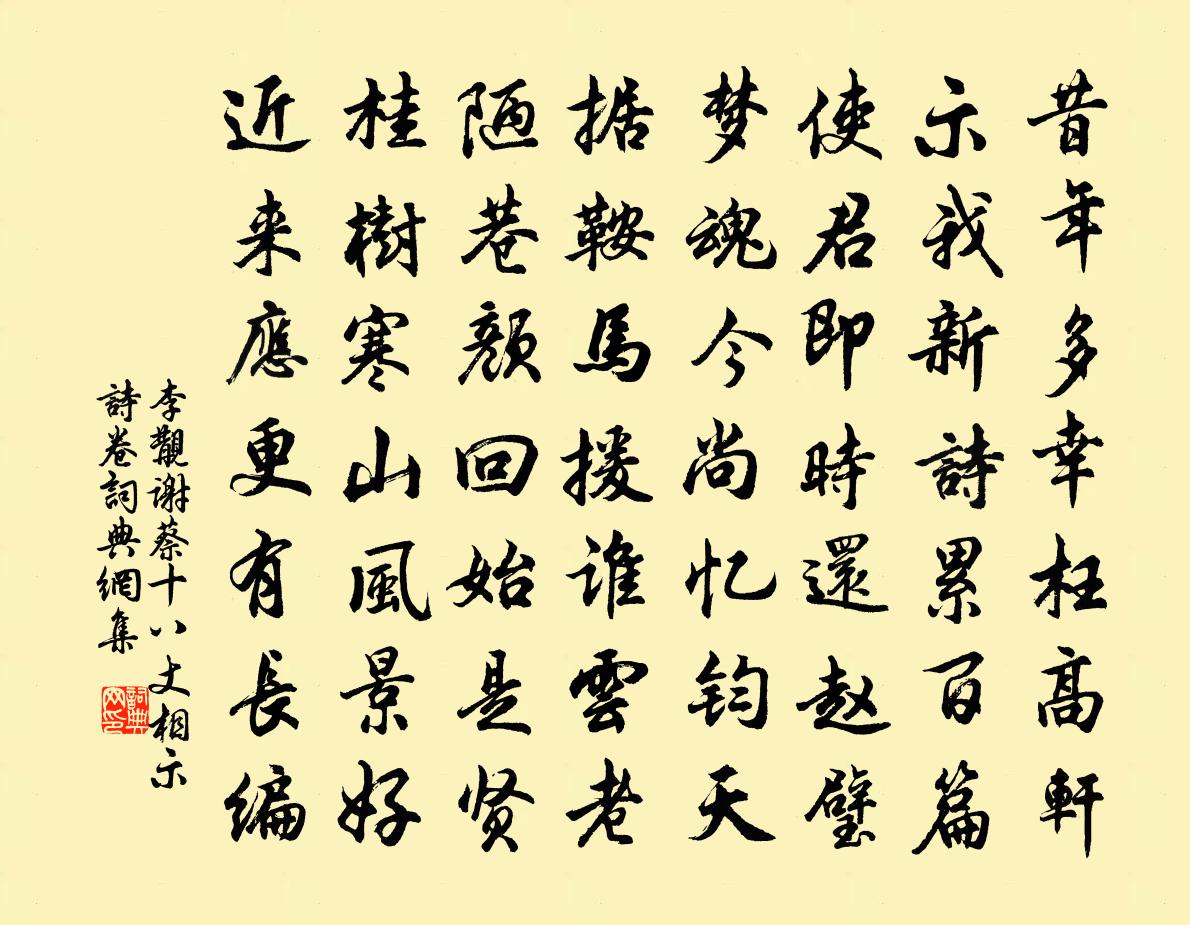 昔年多幸枉高軒
示我新詩累百篇
使君即時還赵璧
梦魂今尚忆钧天
据鞍馬援谁雲老
陋巷颜回始是贤
桂樹寒山風景好
近来應更有長编
李覯谢蔡十八丈相示
詩卷詞典網集
詞典网印